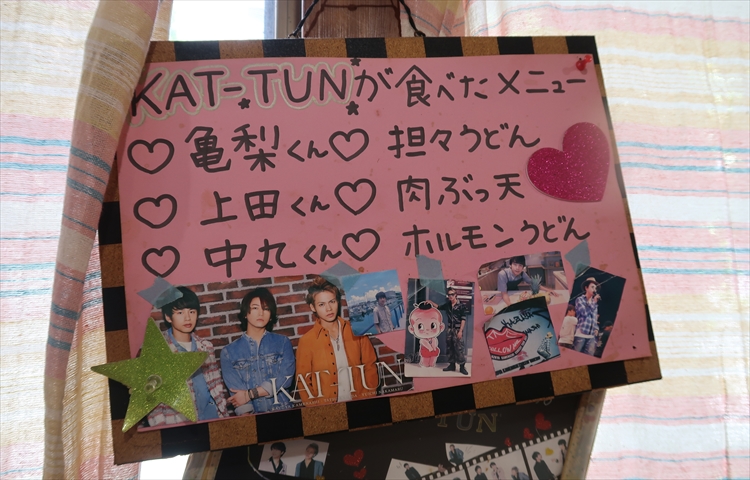 KAT-TUNが食べたメニュー
♡ 亀梨くん♡ 担々うどん
♡ 上田くん♡ 肉ぶっ天
♡ 中丸くん♡ ホルモンうどん
KAT-TUN
TUN